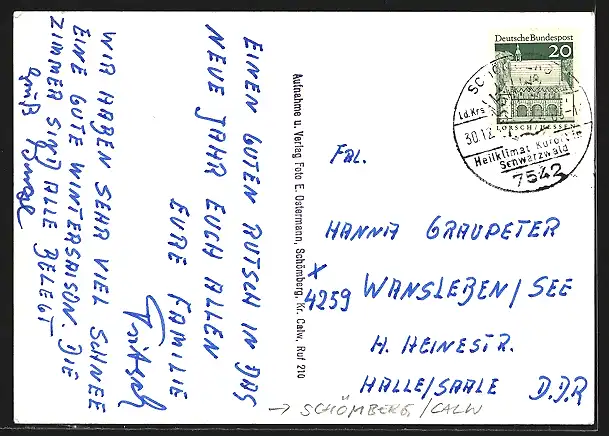 EINEN GUTEN RUTSCH IN DAS
NEUE JAHR EUCH ALLEN
EURE FAMILIE
Fritsch
WIR HABEN SEHR VIEL SCHNEE
EINE GUTE WINTERSAISON. DIE
ZIMMER SIND ALLE BELEGT
Gruß
Aufnahme u. Verlag Foto E. Ostermann, Schömberg, Kr. Calw, Ruf 210
Deutsche Bundespost
20
LORSCH/HESSEN
Ld.Krs
30.12
Heilklimat Kurort im
Schwarzwald
7542
FRL.
HANNA GRAUPETER
X
4259 WANSLEBEN/SEE
H. HEINESTR.
HALLE/SAALE D.D.R
→ SCHÖMBERG/CALW